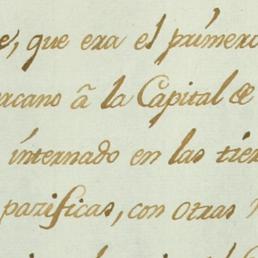 e, que era el primero
rcano â la Capital de
internado en las tier
parificas, con otras